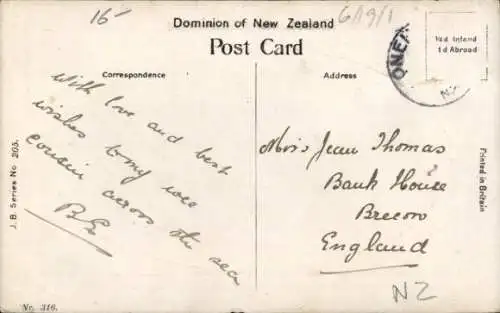 15-
Dominion of New Zealand
6A9/1
Post Card
½d Inland
1d Abroad
Correspondence
Address
ONE
NZ
With love and best
wishes to my wee
cousin across the sea
B.E.
Miss Jean Thomas
Bank House
Brecon
England
NZ
J. B. Series No 205.
Printed in Britain
Nr. 316.